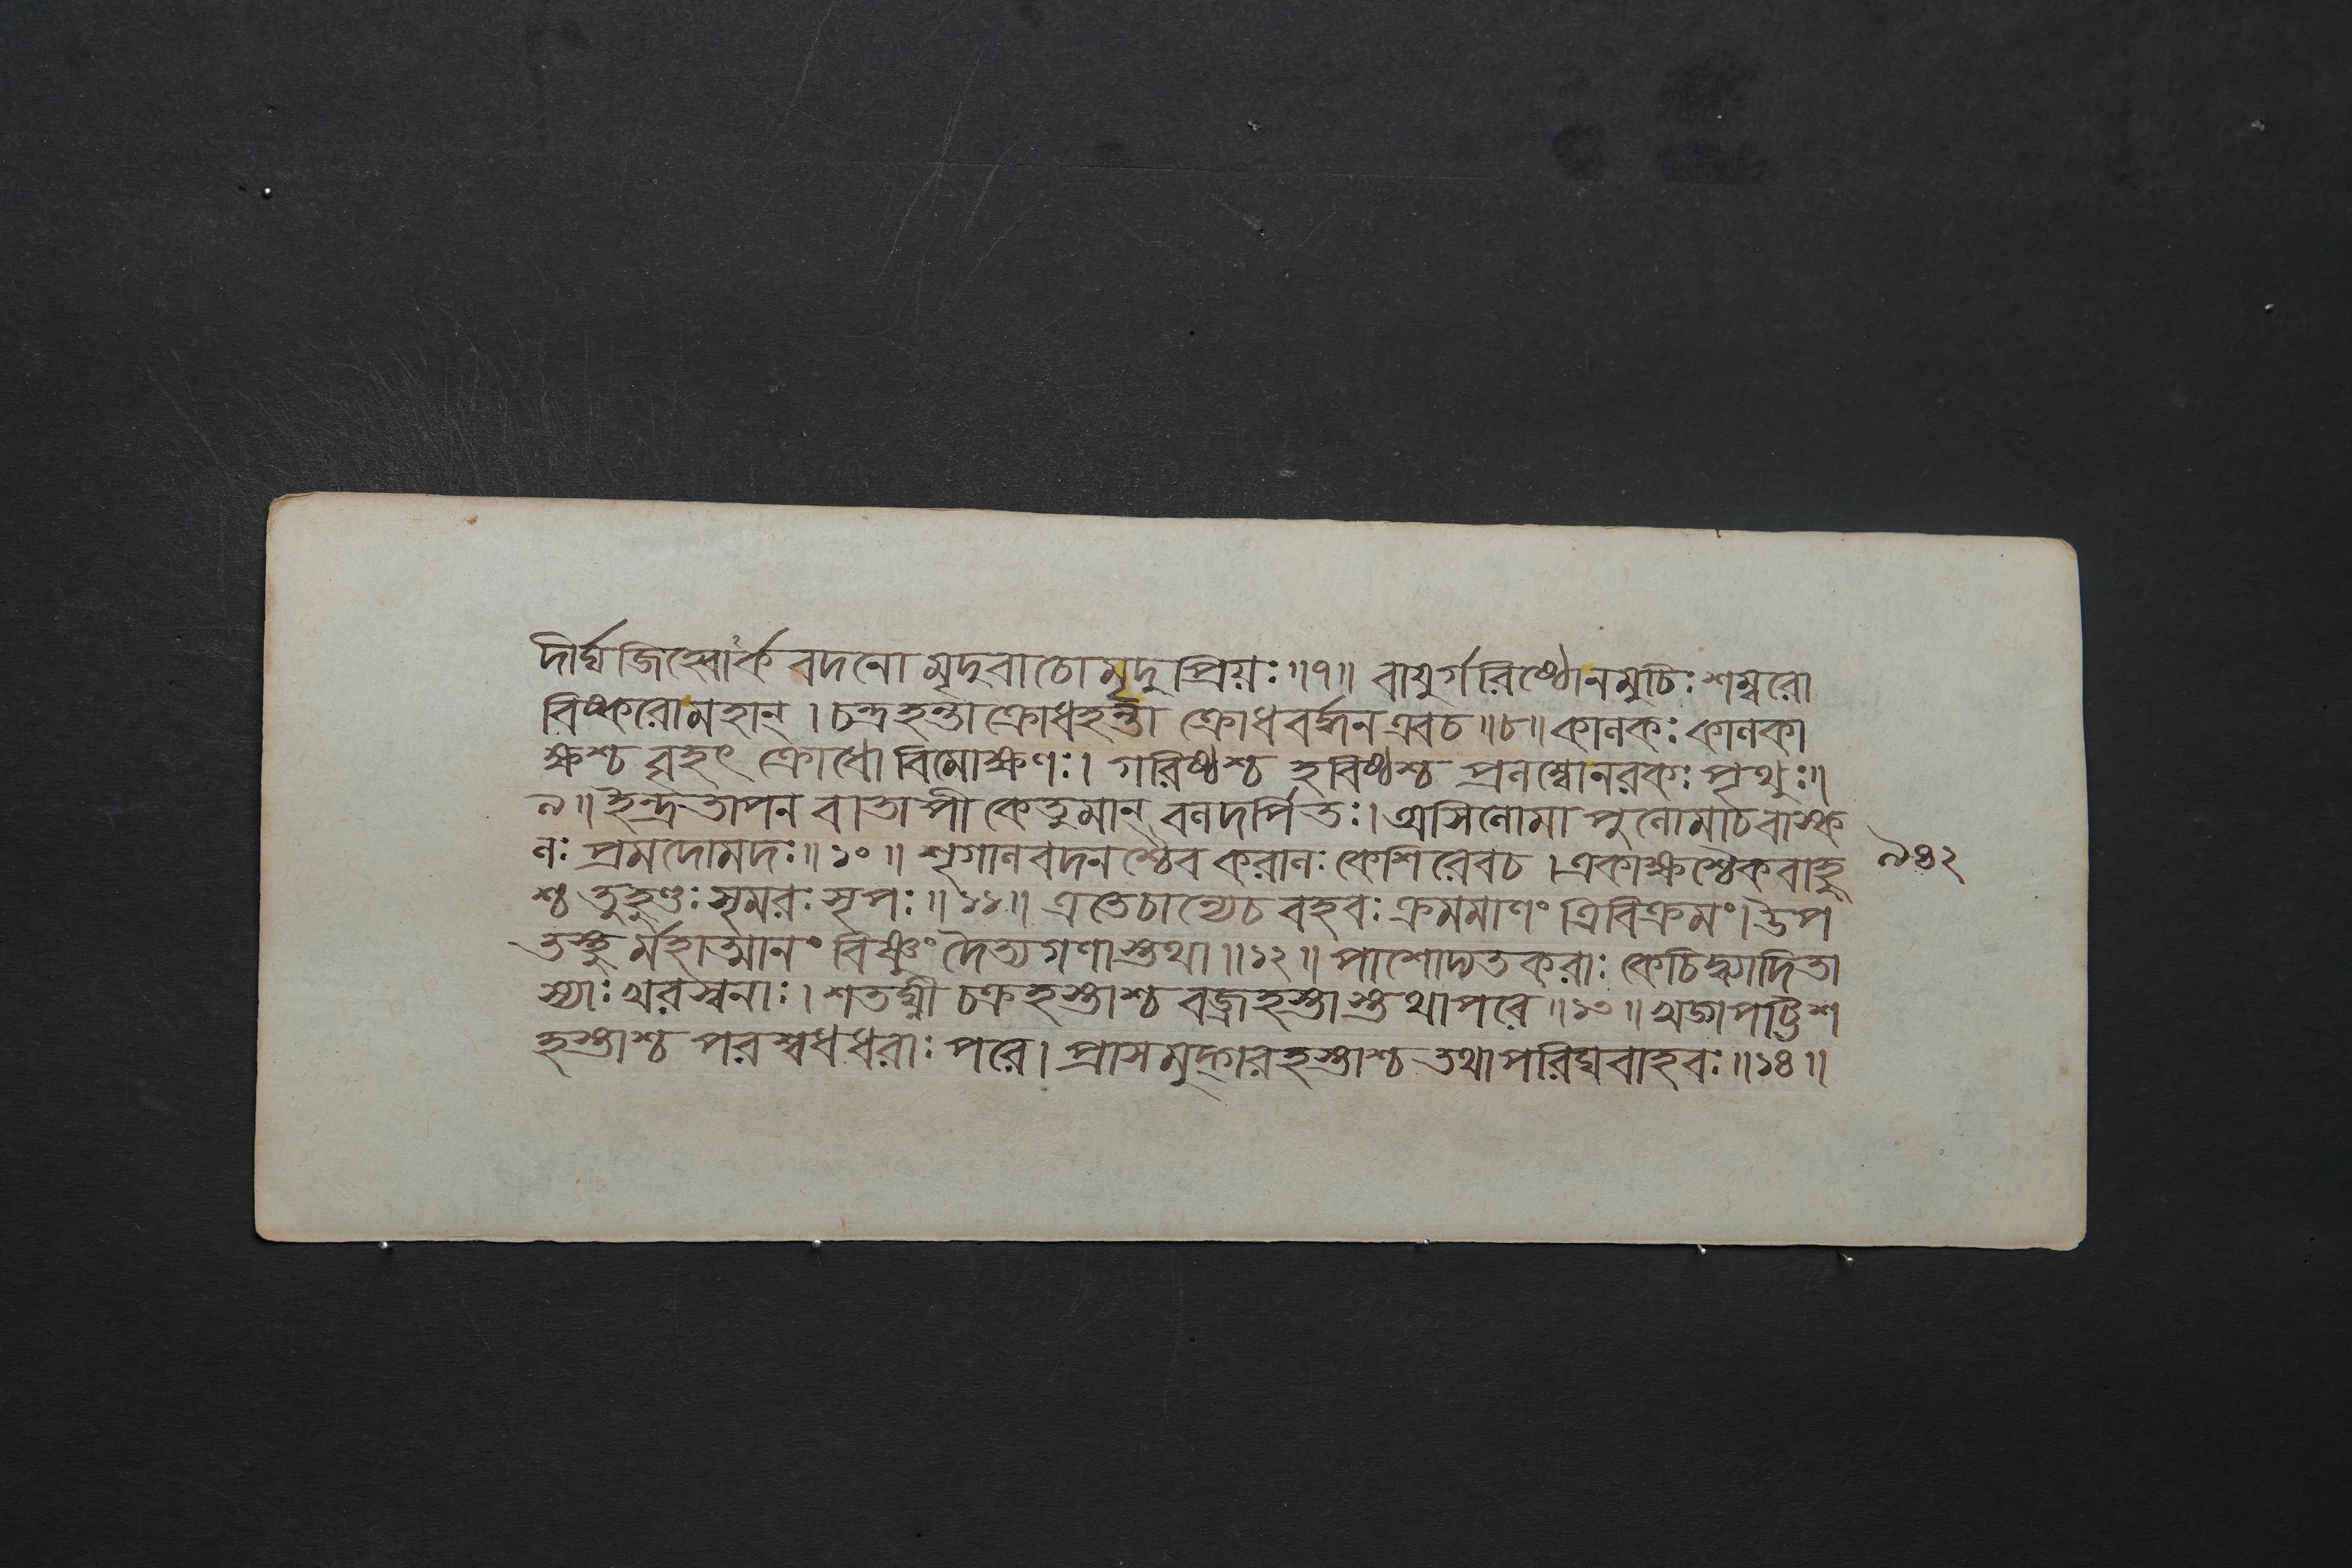 দীর্ঘজিহ্বোঽর্কবদনো মৃদুবাচো মৃদুপ্রিয়ঃ॥৭॥ বায়ুর্গরিষ্ঠোনমুচিঃ শম্বরো
বিষ্করোমহান্ । চন্দ্রহন্তা ক্রোধহন্তা ক্রোধবর্দ্ধন এবচ॥৮॥ কানকঃ কানকা
ক্ষশ্চ বৃহৎ ক্রোধো বিমোক্ষণঃ। গরিষ্ঠশ্চ হবিষ্ঠশ্চ প্রনম্বোনরকঃ পৃথুঃ॥
৯॥ ইন্দ্রতাপন বাতাপী কেতুমান্ বনদর্পিতঃ। অসিনোমা পুনোমাচবাস্ক
নঃ প্রমদোমদঃ॥১০॥ শৃগানবদনশ্চৈব করানঃ কেশিরেবচ । একাক্ষশ্চৈকবাহু
শ্চ তুহুণ্ডঃ সৃমরঃ সৃপঃ॥১১॥ এতেচান্যেচ বহবঃ ক্রমমাণং ত্রিবিক্রমং। উপ
তস্থুর্ম্মহাত্মানং বিষ্ণুং দৈত্যগণাস্তথা॥১২॥ পাশোদ্যতকরাঃ কেচিদ্ব্যাদিতা
স্যাঃ খরস্বনাঃ। শতঘ্নী চক্রহস্তাশ্চ বজ্রহস্তাস্তথাপরে॥১৩॥ খড়্গপট্টিশ
হস্তাশ্চ পরশ্বধধরাঃ পরে। প্রাসমুদ্গরহস্তাশ্চ তথাপরিঘবাহবঃ॥১৪॥
৯৪২